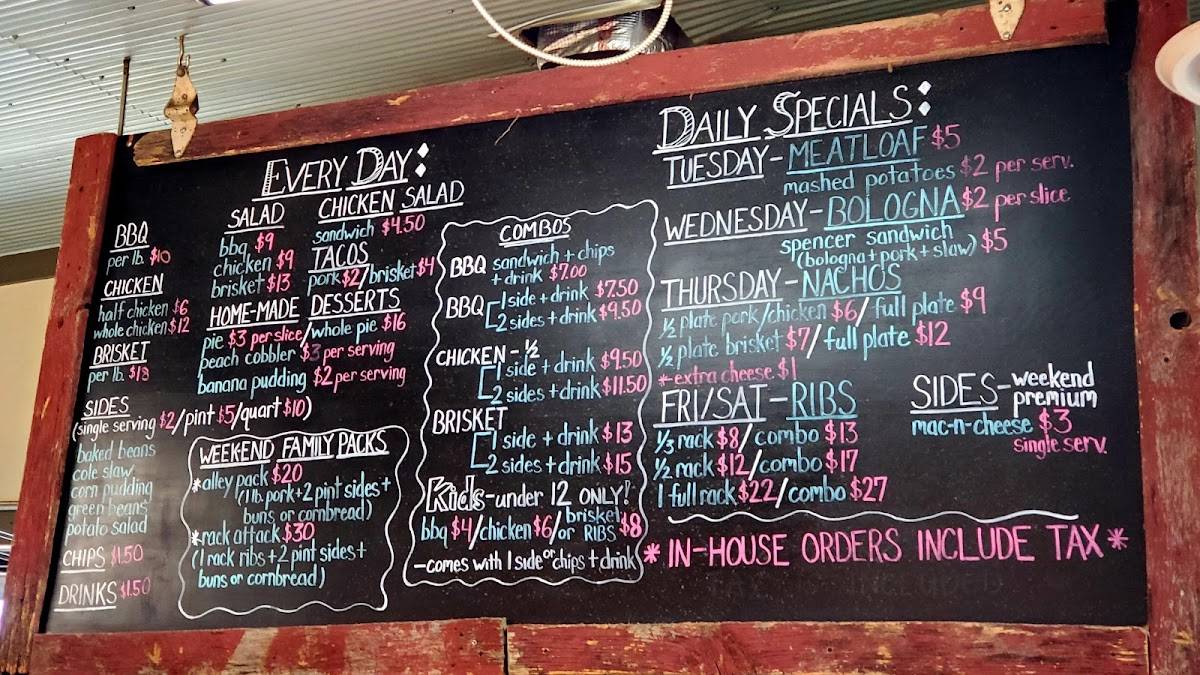 EVERY DAY:
BBQ
per lb. $10
CHICKEN
half chicken $6
whole chicken $12
BRISKET
per lb. $18
SALAD
bbq $9
chicken $9
brisket $13
CHICKEN SALAD
sandwich $4.50
TACOS
pork $2/brisket $4
HOME-MADE DESSERTS
pie $3 per slice/whole pie $16
peach cobbler $3 per serving
banana pudding $2 per serving
SIDES
(single serving $2/pint $5/quart $10)
baked beans
cole slaw
corn pudding
green beans
potato salad
CHIPS $1.50
DRINKS $1.50
WEEKEND FAMILY PACKS
*alley pack $20
(1 lb. pork + 2 pint sides +
buns or cornbread)
*rack attack $30
(1 rack ribs + 2 pint sides +
buns or cornbread)
COMBOS
BBQ sandwich + chips
+ drink $7.00
BBQ 1 side + drink $7.50
2 sides + drink $9.50
CHICKEN - ½
1 side + drink $9.50
2 sides + drink $11.50
BRISKET
1 side + drink $13
2 sides + drink $15
Kids - under 12 ONLY!
bbq $4/chicken $6/brisket or RIBS $8
- comes with 1 side or chips + drink
DAILY SPECIALS:
TUESDAY - MEATLOAF $5
mashed potatoes $2 per serv.
WEDNESDAY - BOLOGNA $2 per slice
spencer sandwich
(bologna + pork + slaw) $5
THURSDAY - NACHOS
½ plate pork/chicken $6/full plate $9
½ plate brisket $7/full plate $12
*-extra cheese $1
FRI/SAT - RIBS
⅓ rack $8/combo $13
½ rack $12/combo $17
1 full rack $22/combo $27
SIDES - weekend premium
mac-n-cheese $3
single serv.
* IN-HOUSE ORDERS INCLUDE TAX *